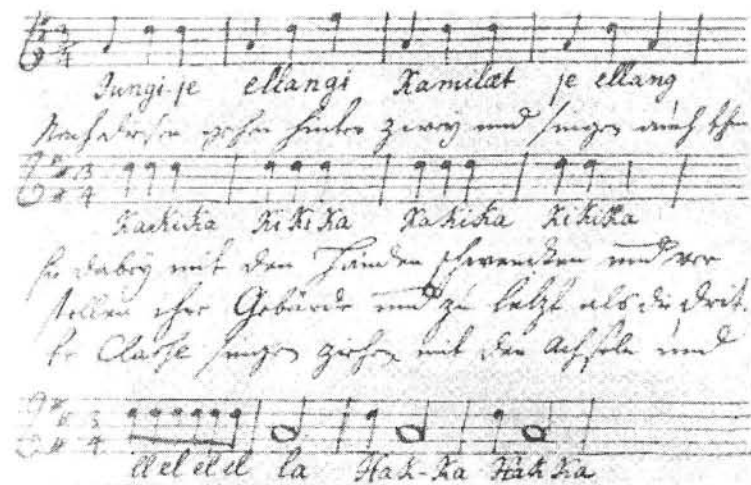 Jungi-je ellangi Kamulæt je ellang
Nach diesen gehen hinter zwey und singen auch
Kaekika KiKiKa KaKiKa KiKiKa
Sie dabey mit den Händen schwencken und ver
stellen ihre Gebärde und zu letzt als die drit
te Classe singen ziehen mit den Achseln und
el el el el la HaK-Ka HaK Ka